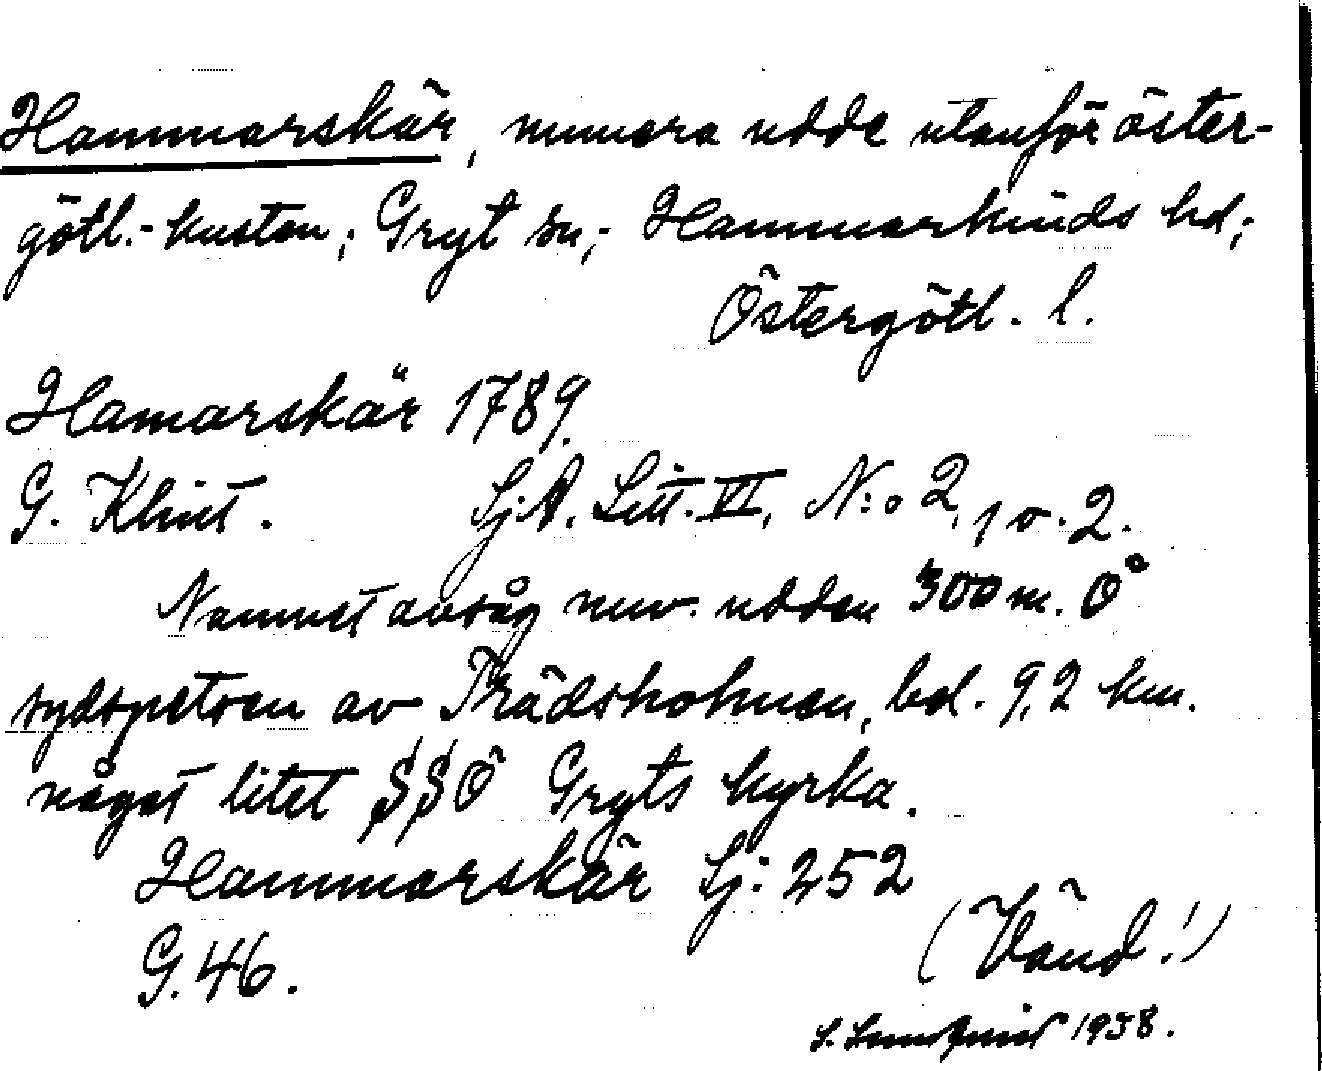 Hammarskär, numera udde utanför öster-
götl.-kusten; Gryt sn; Hammarkinds hd;
Östergötl. l.
Hamarskär 1789.
G. Klint. Sj.A. Litt. VI, N:o 2, 1 o. 2.
Namnet avsåg nuv. udden 300 m. O°
sydspetsen av Trädsholmen, bel. 9,2 km.
något litet SSO Gryts kyrka.
Hammarskär Sj: 252
G. 46.
(Vänd!)
S. 1938.